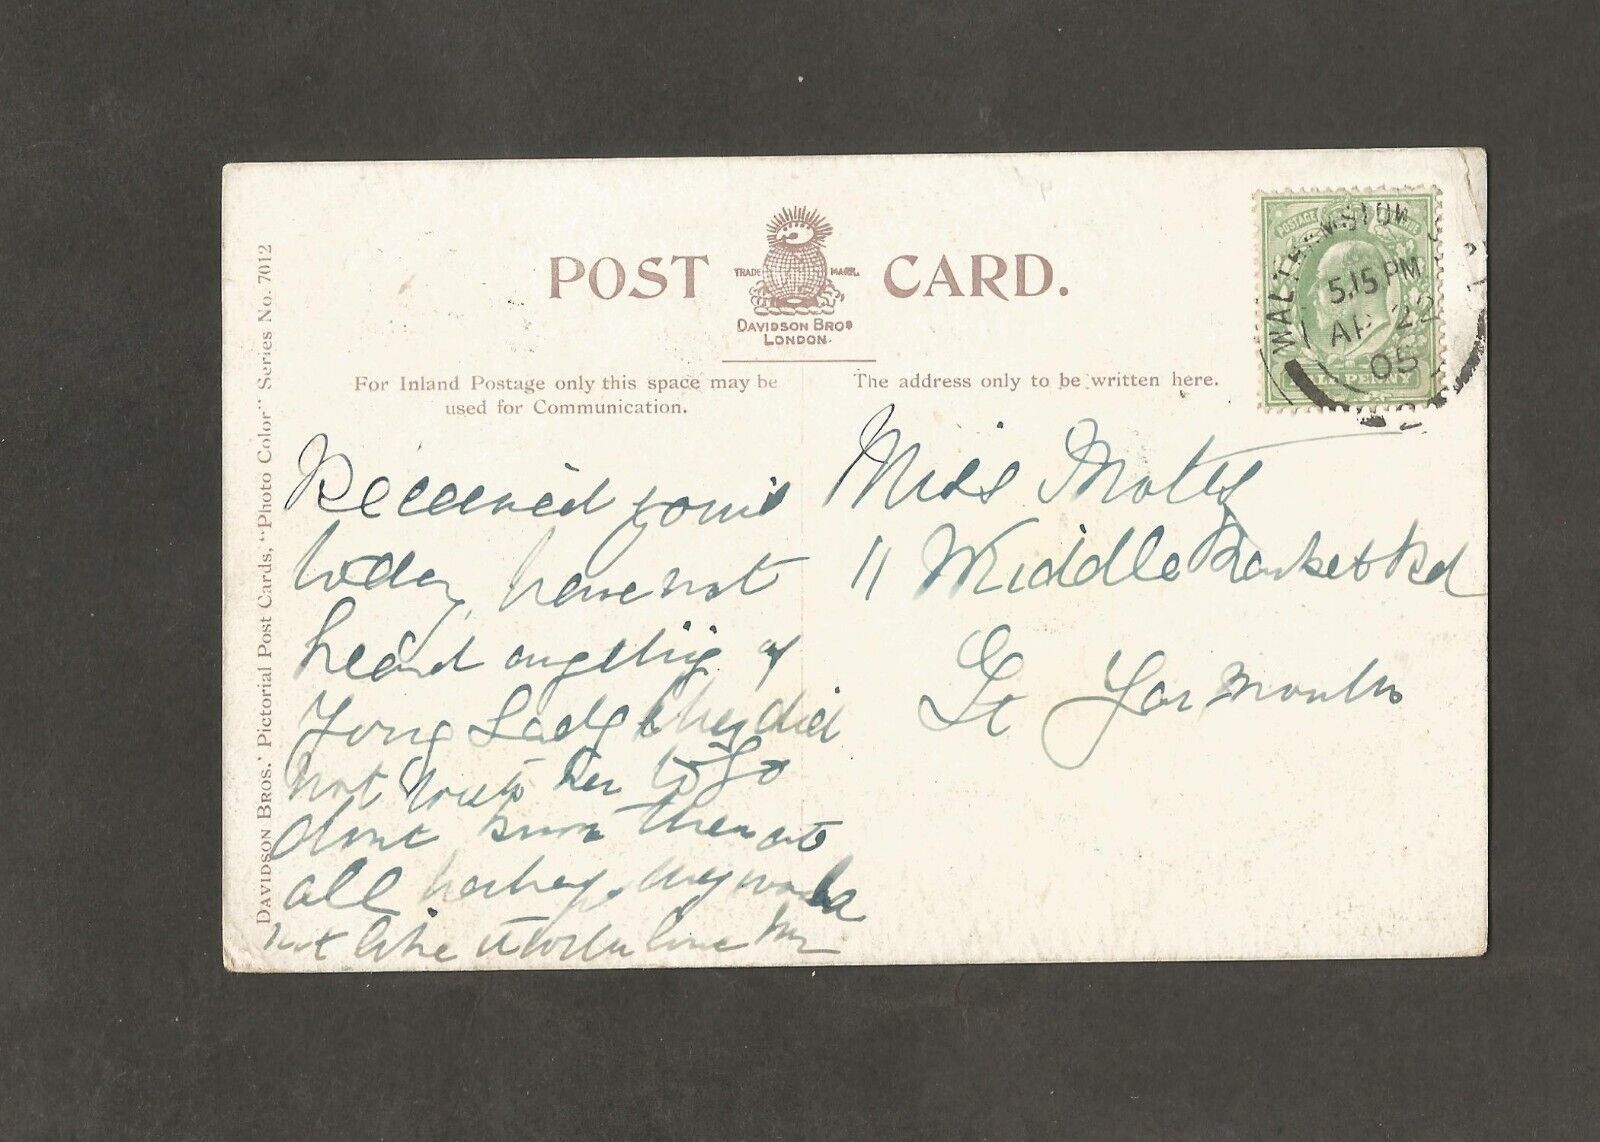 POST CARD.
TRADE MARK.
DAVIDSON BROS
LONDON.
For Inland Postage only this space may be
used for Communication.
The address only to be written here.
DAVIDSON BROS.' Pictorial Post Cards, "Photo Color" Series No. 7012
POSTAGE
PENNY
WALTHAMSTOW
5.15 PM
AP 22
05
Received your's
today, have not
heard anything of
Young Lady they did
not her to go
dont know them at
all they would
not like it love
Miss
11 Middle Market Rd
Gt Yarmouth